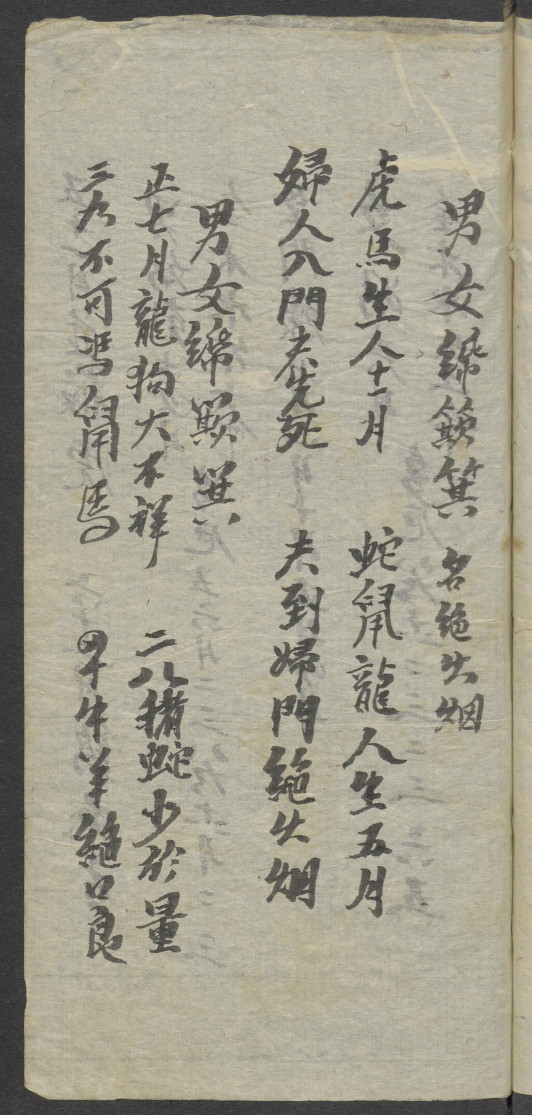 男女絺簸箕 名絕火烟
虎馬生人十一月 蛇鼠龍人生五月
婦人入門夫先死 夫到婦門絕火烟
男女絺簸箕
正七月龍狗大不祥 二八猪蛇少於量
三九不可馮鼠馬 四十牛羊絕口良